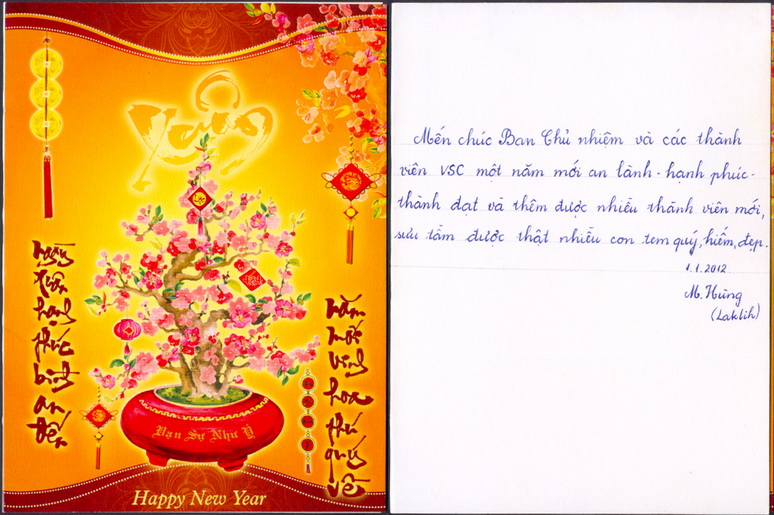 Xuân
Ngày
xuân
hạnh
phúc
bình
an
đến
Năm
mới
vinh
hoa
phú
quý
về
Vạn Sự Như Ý
Happy New Year
Mến chúc Ban Chủ nhiệm và các thành
viên VSC một năm mới an lành - hạnh phúc -
thành đạt và thêm được nhiều thành viên mới,
sưu tầm được thật nhiều con tem quý, hiếm, đẹp.
1.1.2012.
M. Hùng
(Laktih)